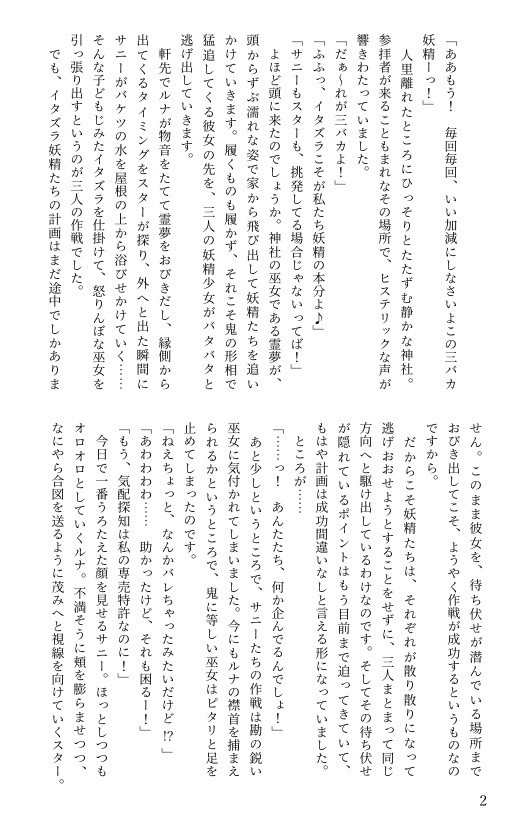 「ああもう！　毎回毎回、いい加減にしなさいよこの三バカ
妖精ーっ！」
　人里離れたところにひっそりとたたずむ静かな神社。
参拝者が来ることもまれなその場所で、ヒステリックな声が
響きわたっていました。
「だぁ～れが三バカよ！」
「ふふっ、イタズラこそが私たち妖精の本分よ♪」
「サニーもスターも、挑発してる場合じゃないってば！」
　よほど頭に来たのでしょうか。神社の巫女である霊夢が、
頭からずぶ濡れな姿で家から飛び出して妖精たちを追い
かけていきます。履くものも履かず、それこそ鬼の形相で
猛追してくる彼女の先を、三人の妖精少女がバタバタと
逃げ出していきます。
　軒先でルナが物音をたてて霊夢をおびきだし、縁側から
出てくるタイミングをスターが探り、外へと出た瞬間に
サニーがバケツの水を屋根の上から浴びせかけていく……
そんな子どもじみたイタズラを仕掛けて、怒りんぼな巫女を
引っ張り出すというのが三人の作戦でした。
　でも、イタズラ妖精たちの計画はまだ途中でしかありま
せん。このまま彼女を、待ち伏せが潜んでいる場所まで
おびき出してこそ、ようやく作戦が成功するというものなの
ですから。
　だからこそ妖精たちは、それぞれが散り散りになって
逃げおおせようとすることをせずに、三人まとまって同じ
方向へと駆け出しているわけなのです。そしてその待ち伏せ
が隠れているポイントはもう目前まで迫ってきていて、
もはや計画は成功間違いなしと言える形になっていました。
　ところが……
「……っ！　あんたたち、何か企んでるんでしょ！」
　あと少しというところで、サニーたちの作戦は勘の鋭い
巫女に気付かれてしまいました。今にもルナの襟首を捕まえ
られるかというところで、鬼に等しい巫女はピタリと足を
止めてしまったのです。
「ねえちょっと、なんかバレちゃったみたいだけど!?」
「あわわわわ……　助かったけど、それも困るー！」
「もう、気配探知は私の専売特許なのに！」
　今日で一番うろたえた顔を見せるサニー。ほっとしつつも
オロオロとしていくルナ。不満そうに頬を膨らませつつ、
なにやら合図を送るように茂みへと視線を向けていくスター。
2